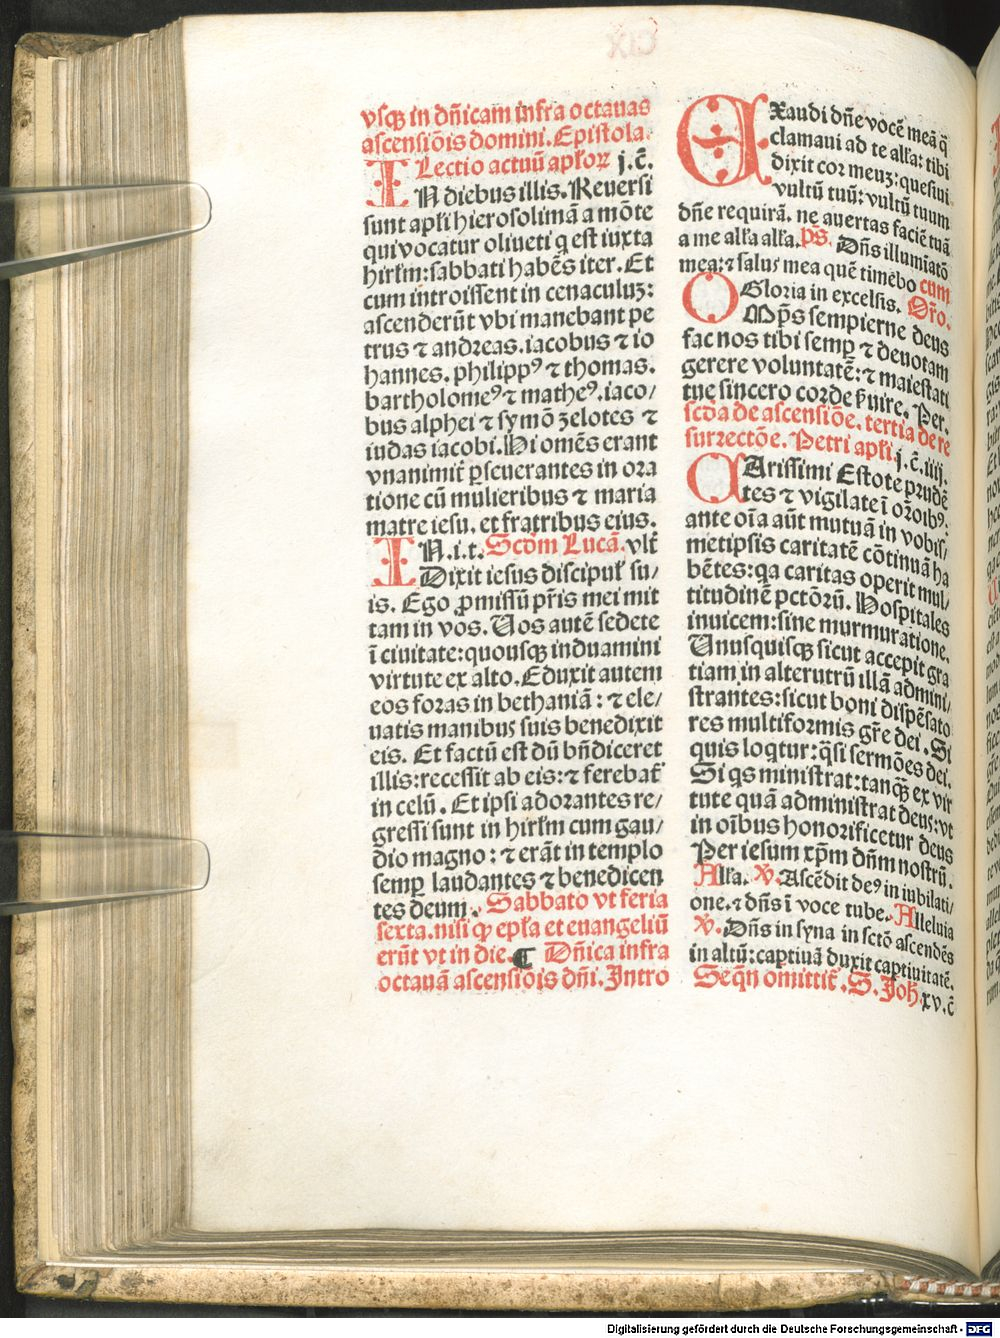 vsqꝫ in dn̄icam infra octauas
ascensiōis domini. Epistola.
Lectio actuū apƚoꝝ j. c̄.
IN diebus illis. Reuersi
sunt apƚi hierosolimā a mōte
qui vocatur oliueti q̄ est iuxta
hirƚm: sabbati habēs iter. Et
cum introissent in cenaculuꝫ:
ascenderūt vbi manebant pe
trus ⁊ andreas. iacobus ⁊ io
hannes. philippꝰ ⁊ thomas.
bartholomeꝰ ⁊ matheꝰ. iaco/
bus alphei ⁊ symō zelotes ⁊
iudas iacobi. Hi omēs erant
vnanimit̄ ꝑseuerantes in ora
tione cū mulieribus ⁊ maria
matre iesu. et fratribus eius.
IN. i. t. Scd̄m Lucā. vlt̄
Dixit iesus discipuƚ su/
is. Ego ꝓmissū pr̄is mei mit
tam in vos. Uos autē sedete
ī ciuitate: quousqꝫ induamini
virtute ex alto. Eduxit autem
eos foras in bethaniā: ⁊ ele/
uatis manibus suis benedixit
eis. Et factū est dū bn̄diceret
illis: recessit ab eis: ⁊ ferebat̄
in celū. Et ipsi adorantes re/
gressi sunt in hirƚm cum gau/
dio magno: ⁊ erāt in templo
semꝑ laudantes ⁊ benedicen
tes deum. Sabbato vt feria
sexta. nisi ꝙ epƚa et euangeliū
erūt vt in die. ¶ Dn̄ica infra
octauā ascensiōis dn̄i. Intro
EXaudi dn̄e vocē meā q̄
clamaui ad te alƚa: tibi
dixit cor meuꝫ: quesiui
vultū tuū: vultū tuum
dn̄e requirā. ne auertas faciē tuā
a me alƚa alƚa. ps̄. Dn̄s illumīatō
mea: ⁊ salus mea quē timebo cum
Gloria in excelsis. Or̄o.
OMp̄s sempiterne deus
fac nos tibi semꝑ ⁊ deuotam
gerere voluntatē: ⁊ maiestati
tue sincero corde ẜuire. Per.
scd̄a de ascensiōe. tertia de re
surrectōe. Petri apƚi. j. c̄. iiij.
CArissimi Estote prudē
tes ⁊ vigilate ī or̄oibꝰ.
ante oīa aūt mutuā in vobis/
metipsis caritatē cōtinuā ha
bētes: qa caritas operit mul/
titudinē pctōrū. Hospitales
inuicem: sine murmuratione.
Unusquisqꝫ sicut accepit gra
tiam in alterutrū illā admini/
strantes: sicut boni dispēsato
res multiformis gr̄e dei. Si
quis loqtur: q̄si sermōes dei.
Si qs ministrat: tanqꝫ ex vir
tute quā administrat deus: vt
in oībus honorificetur deus
Per iesum xp̄m dn̄m nostrū.
Alƚa. ℣. Ascēdit deꝰ in iubilati/
one. ⁊ dn̄s ī voce tube. Alleluia
℣. Dn̄s in syna in sctō ascendēs
in altū: captiuā duxit captiuitatē.
Seq̄n omittit̄. S. Joh. xv. c̄
Digitalisierung gefördert durch die Deutsche Forschungsgemeinschaft - DFG